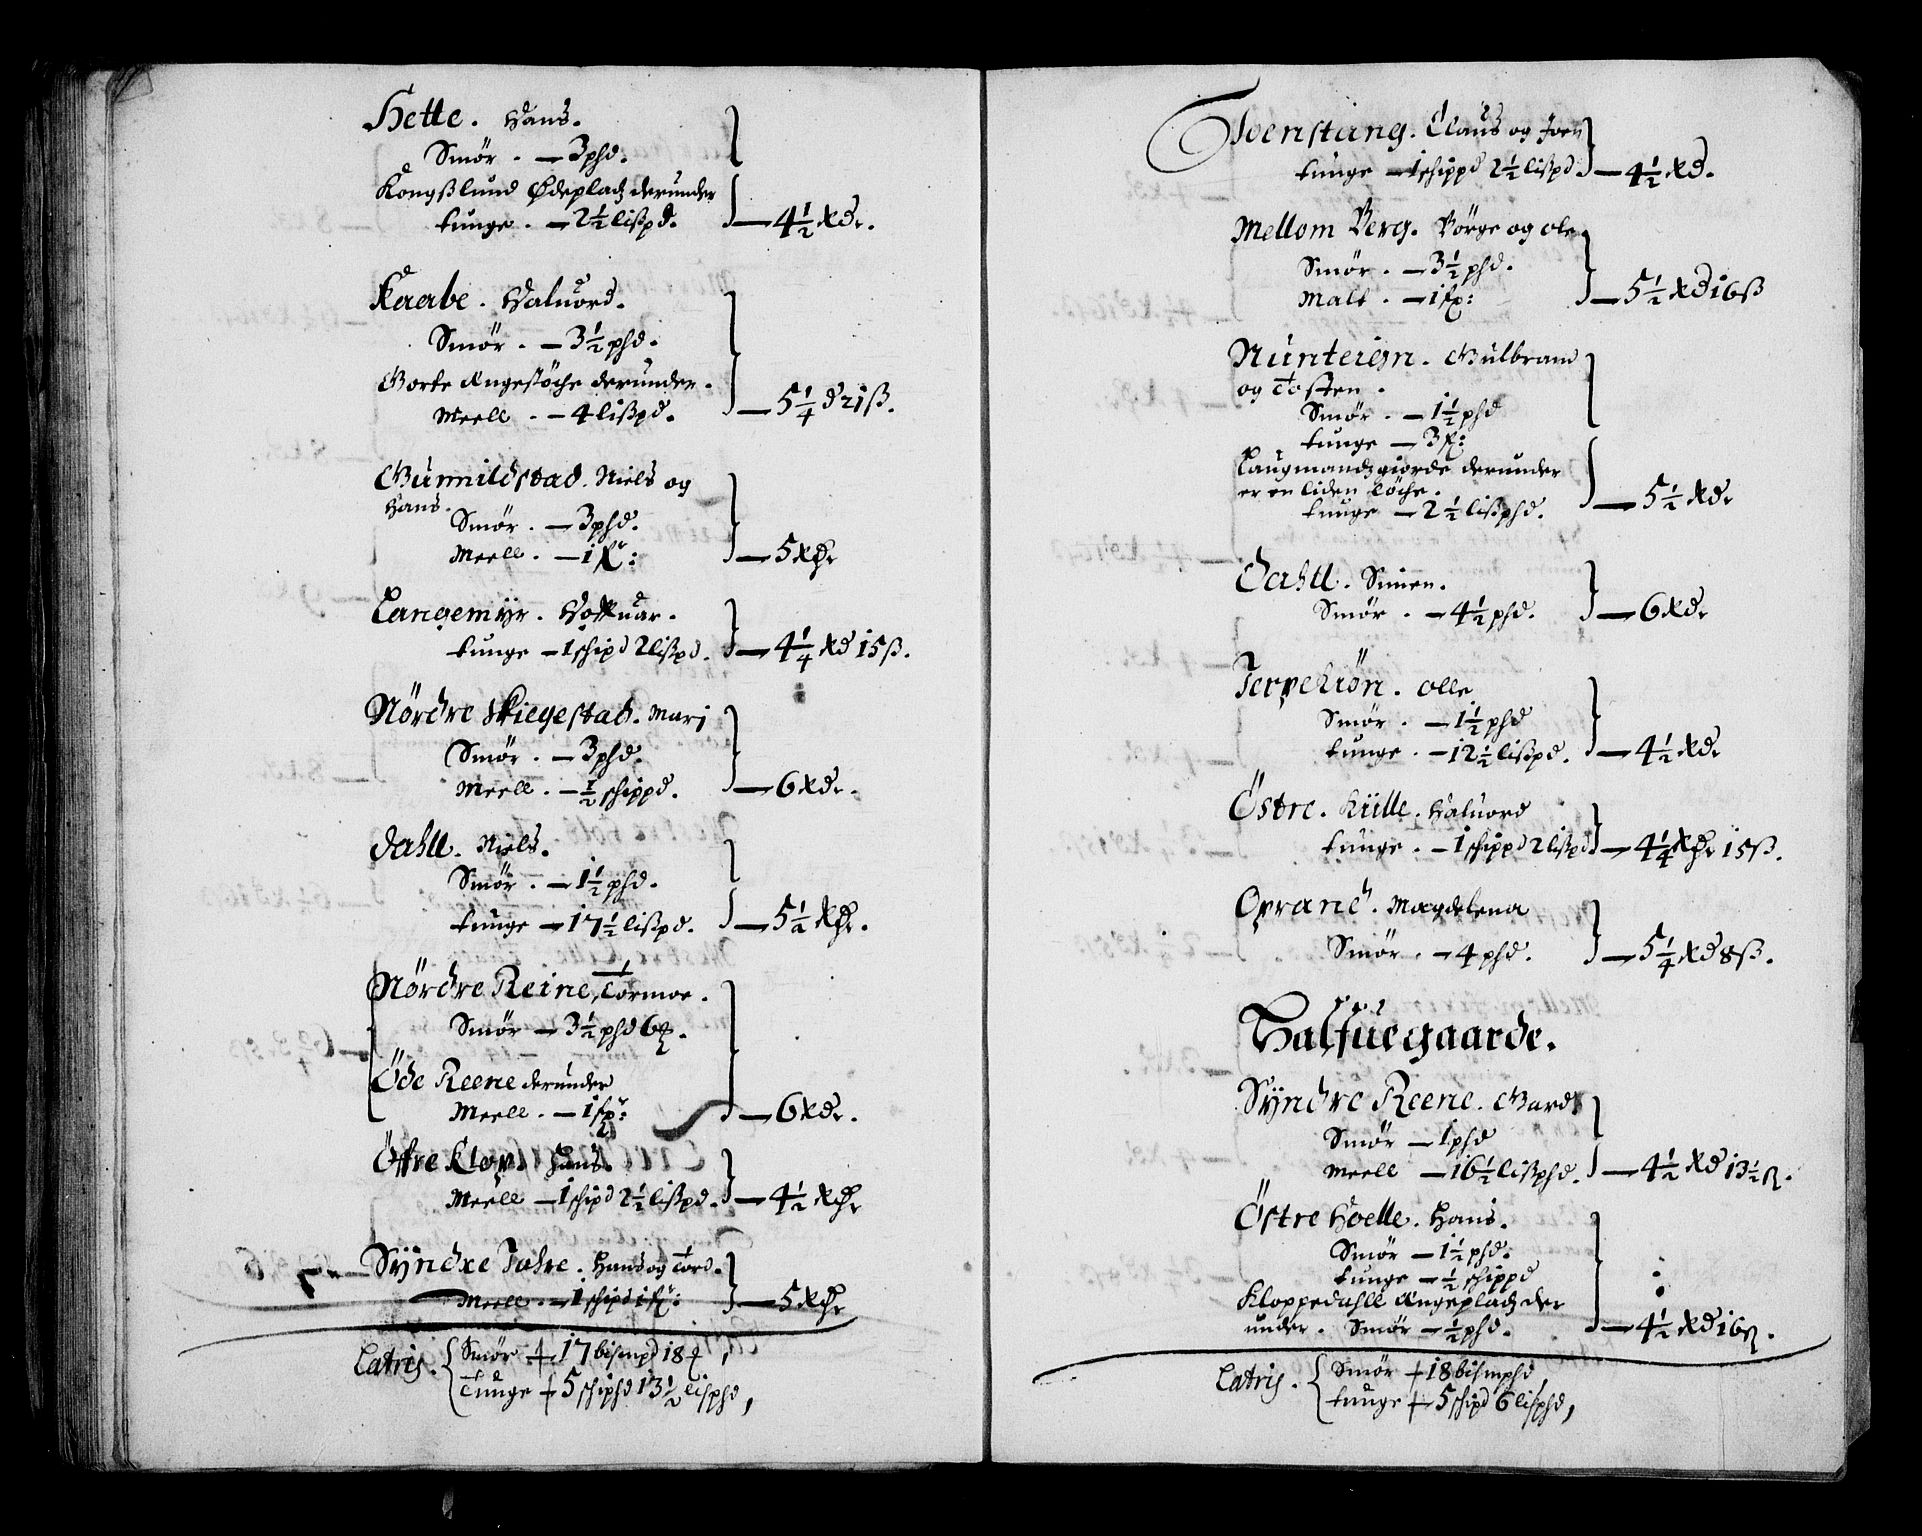 Hette. Hans.
Smör. — 3 phd.
Kongßlund Ødeplads derunder
tunge. — 2½ lißpd. — 4½ Rdr.
Kaabe. Haluord.
Smör. — 3½ phd.
Gorte Engeslöche derunder.
Meell. — 4 lißpd. — 5¼ d 21 ß.
Gunnildstad. Niels og
Hans.
Smör. — 3 phd.
Meell. — 1 f: — 5 Rdr
Langemyr. Hoffuar.
tunge — 1 schipd 2 lißpd. — 4¼ Rd 15 ß.
Nördre Skiegestad. Marj
Smör. — 3 phd.
Meell. — ½ schippd. — 6 Rdr.
Dahll. Niels.
Smör. — 1½ phd.
tunge — 17½ lißpd. — 5½ Rdr.
Nördre Reine, Tormoe.
Smör — 3½ phd 6
Öde Reene derunder
Meell. — 1 f: — 6 Rdr.
Öffre Klop. Hans.
Meell — 1 schipd 2½ lißpd. — 4½ Rdr
Syndre Tafre. Hans og Tord.
Meell. — 1 schipd 1 f: — 5 Rdr
Latris. Smör 17 bismpd 18
Tunge 5 schiphd 13½ lisphd,
Tvenstang. Claus og Joen
tunge — 1 schippd 2½ lißpd. — 4½ Rd.
Mellom Berg. Börge og ole
Smör. — 3½ phd.
Malt. — 1 f: — 5½ Rd 16 ß
Nünteign. Gulbrand
og Tosten.
Smör. — 1½ phd
tunge — 3 f:
Laugmandsgiorde derunder
er en liden löche.
tunge — 2½ lißphd. — 5½ Rdr
Dahll. Simen.
Smör. — 4½ phd. — 6 Rdr
Terpekiön. olle
Smör. — 1½ phd
tunge. — 12½ lißpd. — 4½ Rdr
Östre. Külle. Haluord
tunge. — 1 schippd 2 lißpd — 4¼ Rdr 15 ß.
Oprand. Magdelena
Smör. — 4 phd. — 5¼ Rd 8 ß.
Halfuegaarde.
Syndre Reene. Gard
Smör — 1 phd
Meell — 16½ lißphd. — 4½ Rd 13½ ß.
Östre Hoelle. Hans.
Smör — 1½ phd.
tunge — ½ schippd
Kloppedahll Engeplads der
under. Smör — ½ phd. — 4½ Rd 16 ß.
Latris. Smör 18 bismphd,
tunge 5 schipd 6 lisphd,